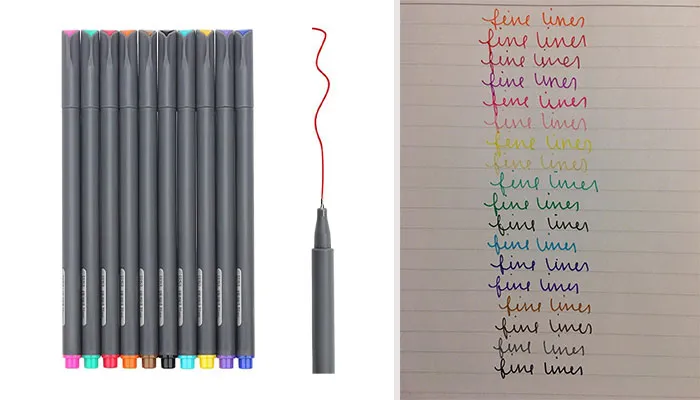 fine lines
fine lines
fine lines
fine lines
fine lines
fine lines
fine lines
fine lines
fine lines
fine lines
fine lines
fine lines
fine lines
fine lines
fine lines
fine lines
fine lines
fine lines